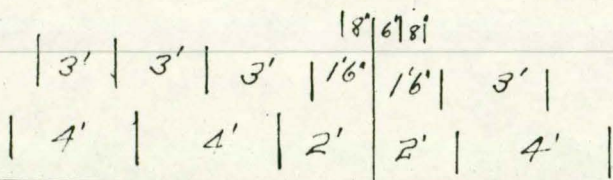 8" 6" 8"
3' 3' 3' 1'6" 1'6" 3'
4' 4' 2' 2' 4'